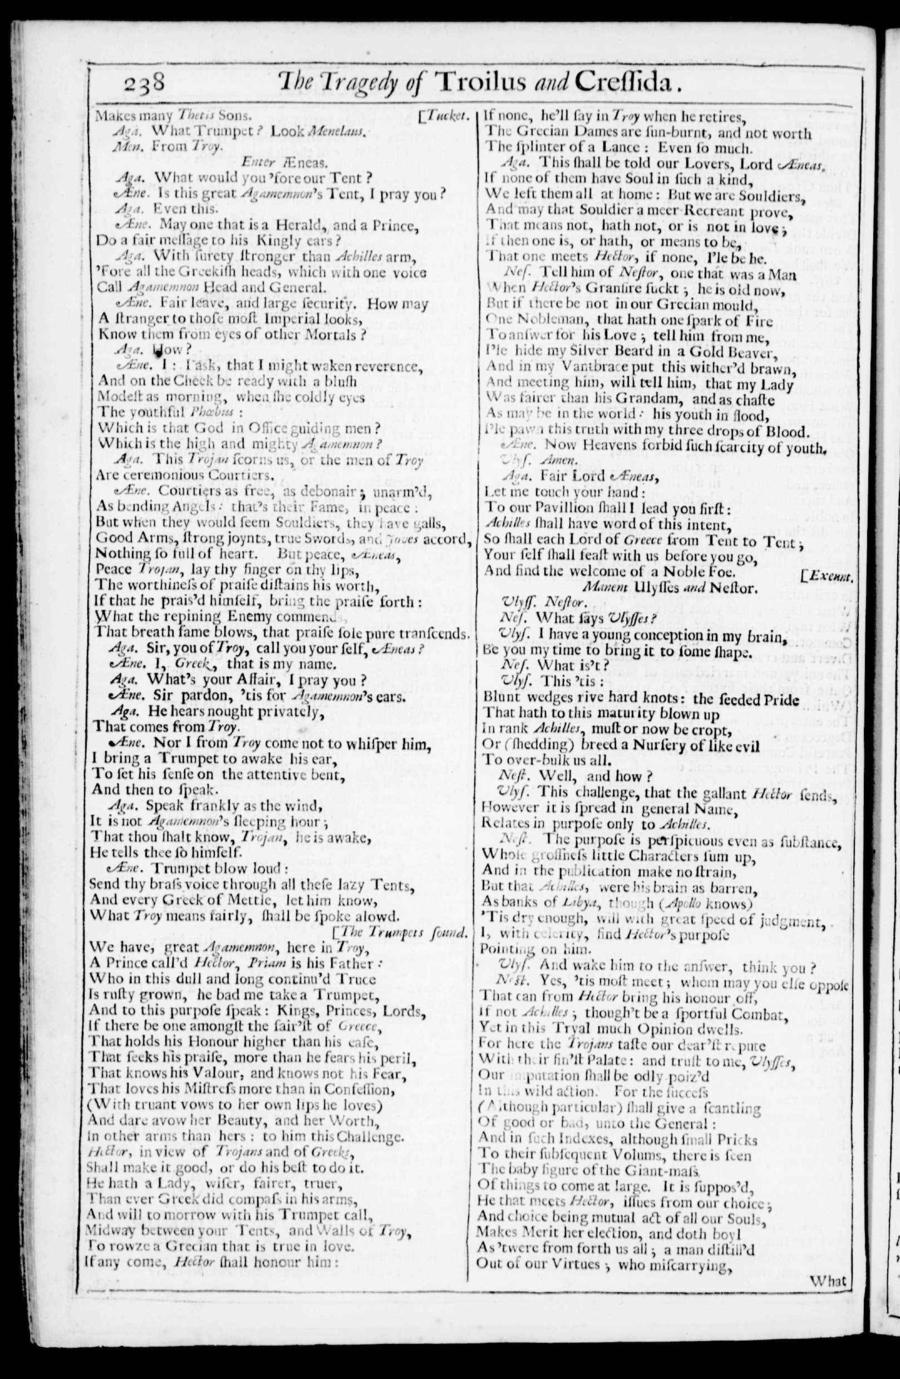 238 The Tragedy of Troilus and Creſſida.
Makes many Thetis Sons. [Tucket.
Aga. What Trumpet? Look Menelaus.
Men. From Troy.
Enter Æneas.
Aga. What would you 'fore our Tent?
Æne. Is this great Agamemnon's Tent, I pray you?
Aga. Even this.
Æne. May one that is a Herald, and a Prince,
Do a fair meſſage to his Kingly ears?
Aga. With ſurety ſtronger than Achilles arm,
'Fore all the Greekiſh heads, which with one voice
Call Agamemnon Head and General.
Æne. Fair leave, and large ſecurity. How may
A ſtranger to thoſe moſt Imperial looks,
Know them from eyes of other Mortals?
Aga. How?
Æne. I: I ask, that I might waken reverence,
And on the Cheek be ready with a bluſh
Modeſt as morning, when ſhe coldly eyes
The youthful Phœbus:
Which is that God in Office guiding men?
Which is the high and mighty Agamemnon?
Aga. This Trojan ſcorns us, or the men of Troy
Are ceremonious Courtiers.
Æne. Courtiers as free, as debonair; unarm'd,
As bending Angels: that's their Fame, in peace:
But when they would ſeem Souldiers, they have galls,
Good Arms, ſtrong joynts, true Swords, and Joves accord,
Nothing ſo full of heart. But peace, Æneas,
Peace Trojan, lay thy finger on thy lips,
The worthineſs of praiſe diſtains his worth,
If that he prais'd himſelf, bring the praiſe forth:
What the repining Enemy commends,
That breath fame blows, that praiſe ſole pure tranſcends.
Aga. Sir, you of Troy, call you your ſelf, Æneas?
Æne. I, Greek, that is my name.
Aga. What's your Affair, I pray you?
Æne. Sir pardon, 'tis for Agamemnon's ears.
Aga. He hears nought privately,
That comes from Troy.
Æne. Nor I from Troy come not to whiſper him,
I bring a Trumpet to awake his ear,
To ſet his ſenſe on the attentive bent,
And then to ſpeak.
Aga. Speak frankly as the wind,
It is not Agamemnon's ſleeping hour;
That thou ſhalt know, Trojan, he is awake,
He tells thee ſo himſelf.
Æne. Trumpet blow loud:
Send thy braſs voice through all theſe lazy Tents,
And every Greek of Mettle, let him know,
What Troy means fairly, ſhall be ſpoke alowd.
[The Trumpets ſound.
We have, great Agamemnon, here in Troy,
A Prince call'd Hector, Priam is his Father:
Who in this dull and long continu'd Truce
Is ruſty grown, he bad me take a Trumpet,
And to this purpoſe ſpeak: Kings, Princes, Lords,
If there be one amongſt the fair'ſt of Greece,
That holds his Honour higher than his eaſe,
That ſeeks his praiſe, more than he fears his peril,
That knows his Valour, and knows not his Fear,
That loves his Miſtreſs more than in Confeſſion,
(With truant vows to her own lips he loves)
And dare avow her Beauty, and her Worth,
In other arms than hers: to him this Challenge.
Hector, in view of Trojans and of Greeks,
Shall make it good, or do his beſt to do it.
He hath a Lady, wiſer, fairer, truer,
Than ever Greek did compaſs in his arms,
And will to morrow with his Trumpet call,
Midway between your Tents, and Walls of Troy,
To rowze a Grecian that is true in love.
If any come, Hector ſhall honour him:
If none, he'll ſay in Troy when he retires,
The Grecian Dames are ſun-burnt, and not worth
The ſplinter of a Lance: Even ſo much.
Aga. This ſhall be told our Lovers, Lord Æneas,
If none of them have Soul in ſuch a kind,
We left them all at home: But we are Souldiers,
And may that Souldier a meer Recreant prove,
That means not, hath not, or is not in love;
If then one is, or hath, or means to be,
That one meets Hector, if none, I'le be he.
Neſ. Tell him of Neſtor, one that was a Man
When Hector's Granſire ſuckt; he is old now,
But if there be not in our Grecian mould,
One Nobleman, that hath one ſpark of Fire
To anſwer for his Love; tell him from me,
I'le hide my Silver Beard in a Gold Beaver,
And in my Vantbrace put this wither'd brawn,
And meeting him, will tell him, that my Lady
Was fairer than his Grandam, and as chaſte
As may be in the world: his youth in flood,
I'le pawn this truth with my three drops of Blood.
Æne. Now Heavens forbid ſuch ſcarcity of youth.
Ulyſ. Amen.
Aga. Fair Lord Æneas,
Let me touch your hand:
To our Pavillion ſhall I lead you firſt:
Achilles ſhall have word of this intent,
So ſhall each Lord of Greece from Tent to Tent;
Your ſelf ſhall feaſt with us before you go,
And find the welcome of a Noble Foe. [Exeunt.
Manent Ulyſſes and Neſtor.
Ulyſſ. Neſtor.
Neſ. What ſays Ulyſſes?
Ulyſ. I have a young conception in my brain,
Be you my time to bring it to ſome ſhape.
Neſ. What is't?
Ulyſ. This 'tis:
Blunt wedges rive hard knots: the ſeeded Pride
That hath to this maturity blown up
In rank Achilles, muſt or now be cropt,
Or (ſhedding) breed a Nurſery of like evil
To over-bulk us all.
Neſt. Well, and how?
Ulyſ. This challenge, that the gallant Hector ſends,
However it is ſpread in general Name,
Relates in purpoſe only to Achilles.
Neſt. The purpoſe is perſpicuous even as ſubſtance,
Whoſe groſſneſs little Characters ſum up,
And in the publication make no ſtrain,
But that Achilles, were his brain as barren,
As banks of Libya, though (Apollo knows)
'Tis dry enough, will with great ſpeed of judgment,
I, with celerity, find Hector's purpoſe
Pointing on him.
Ulyſ. And wake him to the anſwer, think you?
Neſt. Yes, 'tis moſt meet; whom may you elſe oppoſe
That can from Hector bring his honour off,
If not Achilles; though't be a ſportful Combat,
Yet in this Tryal much Opinion dwells.
For here the Trojans taſte our dear'ſt repute
With their fin'ſt Palate: and truſt to me, Ulyſſes,
Our imputation ſhall be odly poiz'd
In this wild action. For the ſucceſs
(Although particular) ſhall give a ſcantling
Of good or bad, unto the General:
And in ſuch Indexes, although ſmall Pricks
To their ſubſequent Volums, there is ſeen
The baby figure of the Giant-maſs
Of things to come at large. It is ſuppos'd,
He that meets Hector, iſſues from our choice;
And choice being mutual act of all our Souls,
Makes Merit her election, and doth boyl
As 'twere from forth us all; a man diſtill'd
Out of our Virtues; who miſcarrying,
What